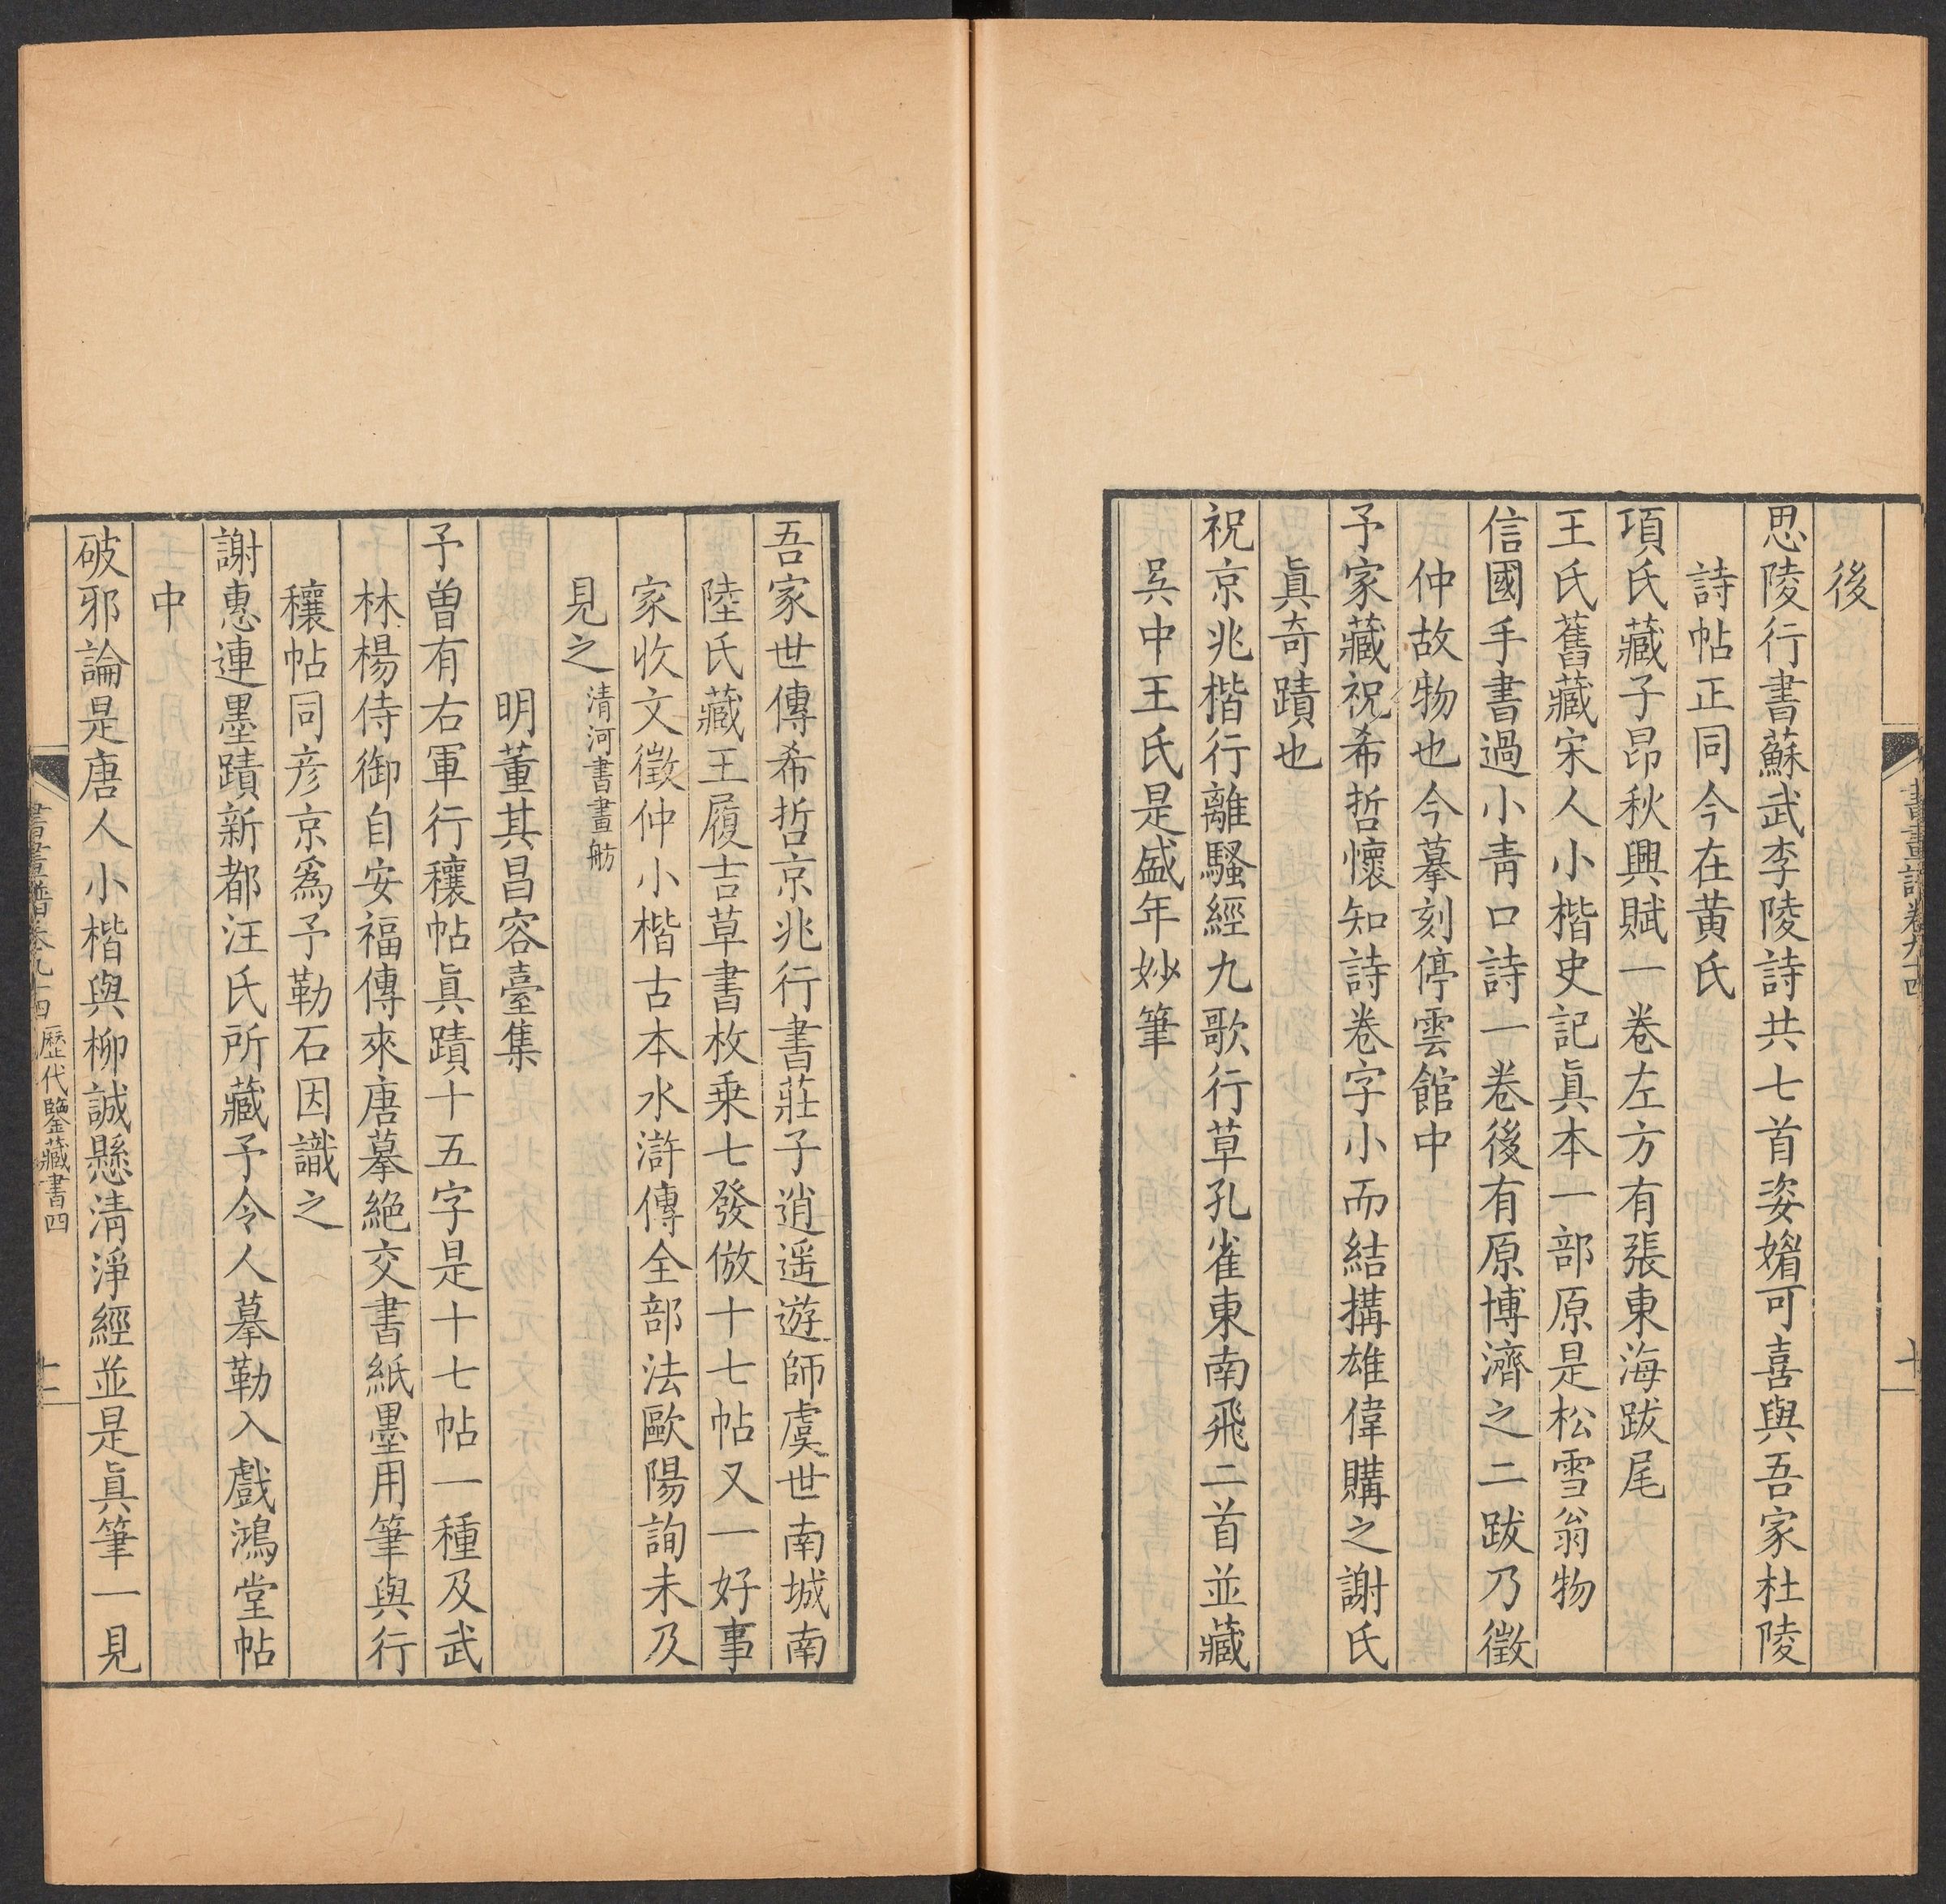 書畫譜卷九十四
後
思陵行書蘇武李陵詩共七首姿媚可喜與吾家杜陵
詩帖正同今在黄氏
項氏藏子昂秋興賦一卷左方有張東海跋尾
王氏舊藏宋人小楷史記眞本一部原是松雪翁物
信國手書過小青口詩一卷後有原博濟之二跋乃徵
仲故物也今摹刻停雲館中
予家藏祝希哲懷知詩卷字小而結搆雄偉購之謝氏
眞奇蹟也
祝京兆楷行離騷經九歌行草孔雀東南飛二首並藏
吳中王氏是盛年妙筆
吾家世傳希哲京兆行書莊子逍遥遊師虞世南城南
陸氏藏王履吉草書枚乗七發倣十七帖又一好事
家收文徵仲小楷古本水滸傳全部法歐陽詢未及
見之清河書畫舫
明董其昌容臺集
予曽有右軍行穰帖眞蹟十五字是十七帖一種及武
林楊侍御自安福傳來唐摹絶交書紙墨用筆與行
穰帖同彦京爲予勒石因識之
謝惠連墨蹟新都汪氏所藏予令人摹勒入戲鴻堂帖
中
破邪論是唐人小楷與柳誠懸清淨經並是眞筆一見
書畫譜卷九十四 歷代鑒藏書四 十一